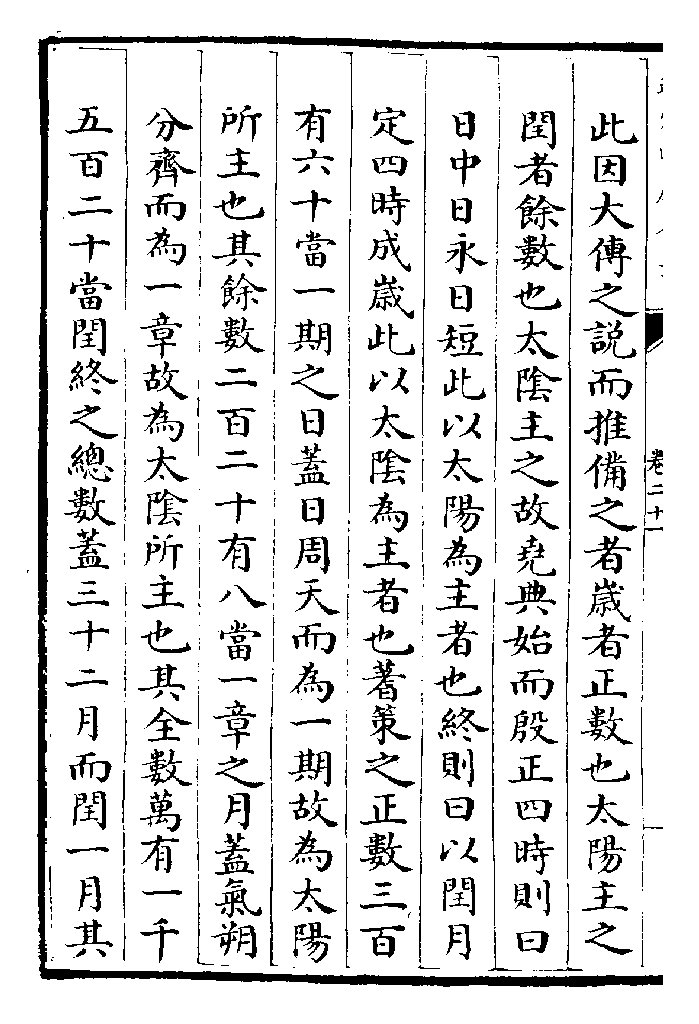 此因大傳之説而推備之者嵗者正數也太陽主之
閏者餘數也太陰主之故堯典始而殷正四時則曰
日中日永日短此以太陽為主者也終則曰以閏月
定四時成嵗此以太陰為主者也蓍策之正數三百
有六十當一期之日蓋日周天而為一期故為太陽
所主也其餘數二百二十有八當一章之月蓋氣朔
分齊而為一章故為太陰所主也其全數萬有一千
五百二十當閏終之總數蓋三十二月而閏一月其
卷二十一